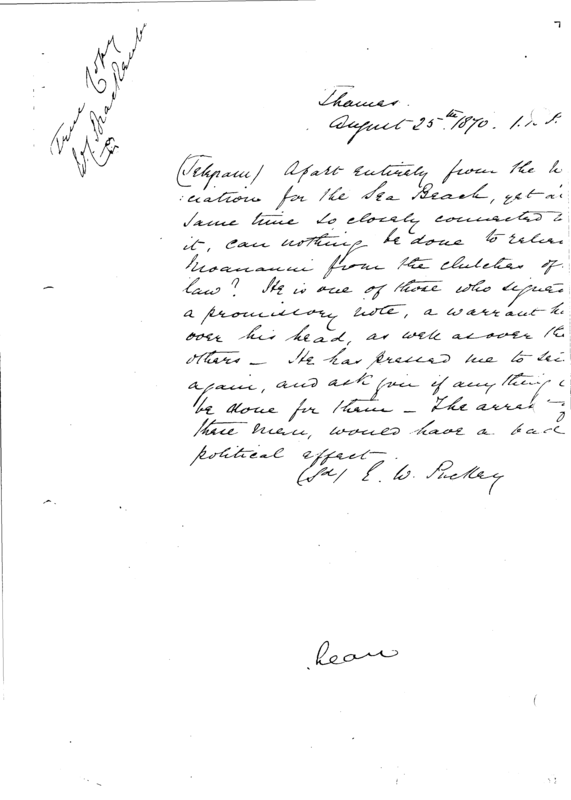 True Copy
Thames.
August 25.th 1870.
(Telegram) Apart entirely from the
:ciation for the Sea Beach, yet a
same time so closely connected
it, can nothing be done to
Moananui from the clutches of
law? He is one of those who signed
a promissory note, a warrant h
over his head, as well as over the
others – He has pressed me to
again, and ask you if anything c
be done for them – The arres
these men, would have a bad
political effect.
(Sd) E. W. Puckey
7